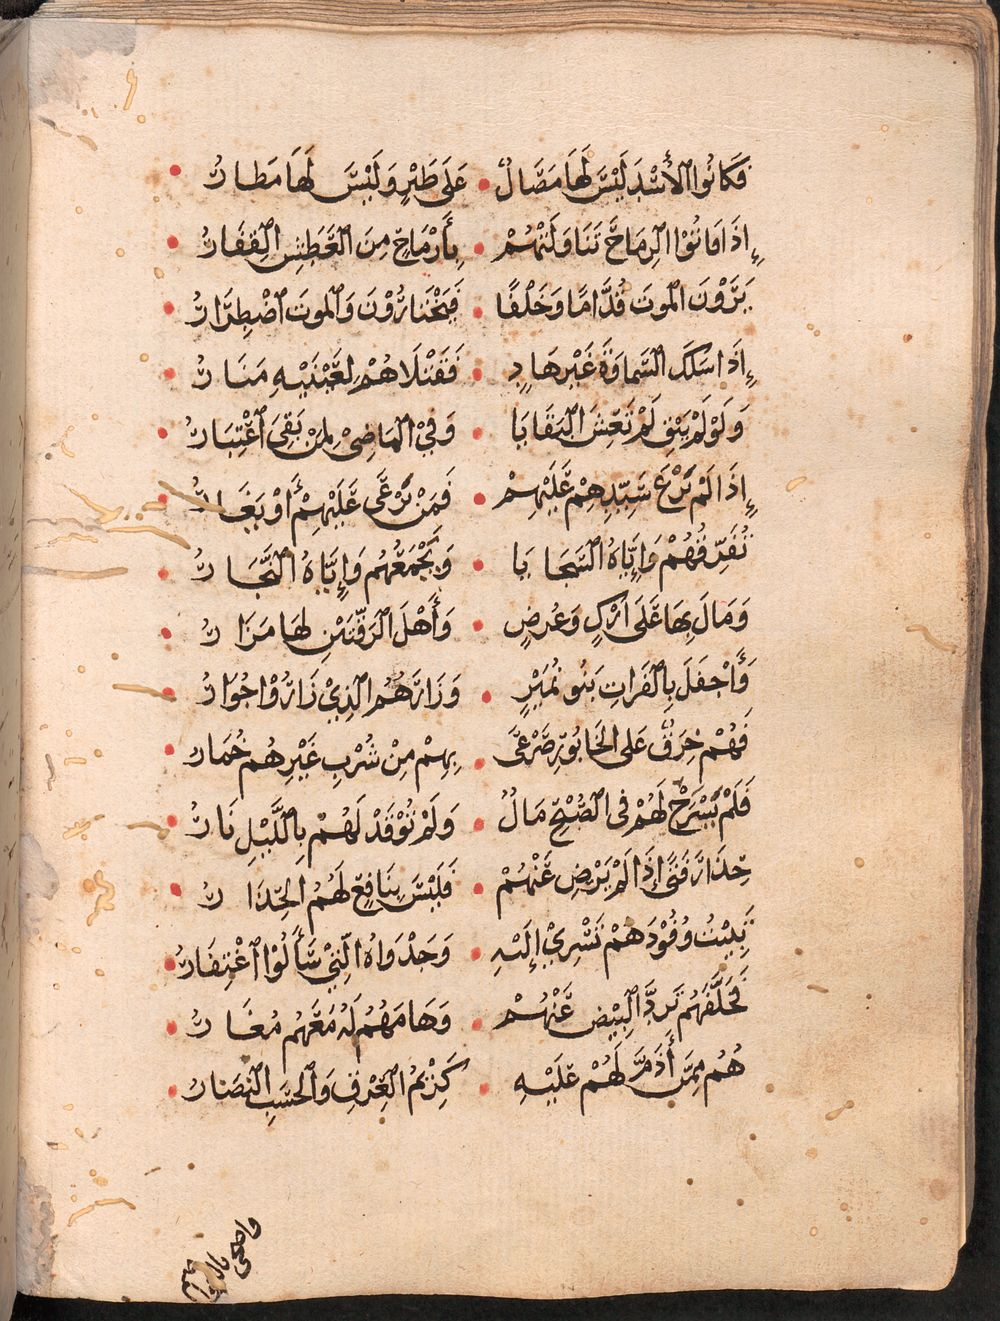 فَكَانُوا الأُسْدَ لَيْسَ لَهَا مَصَالٌ • عَلَى طَيْرٍ وَلَيْسَ لَهَا مَطَارُ •
إِذَا فَاتُوْا الرِمَاحَ تَنَاوَلَتْهُمْ • بِأَرْمَاحٍ مِنَ الْعَطَشِ الْقِفَارُ •
يَرَوْنَ الْموتَ قُدَّامًا وَخَلْفًا • فَيَخْتَارُوْنَ وَالْموتَ اضْطِرَارُ •
إِذَا سَلَكَ السَّمَاوَةَ غَيْرُ هَادٍ • فَقَتْلَاهُمْ لِعَيْنَيْهِ مَنَارُ •
وَلَوْ لَمْ يَبْقَ لَمْ تَعِشِ الْبَقَايَا • وَفِيْ الْمَاضِيْ لِمَنْ بَقِيَ اعْتِبَارُ •
إِذَا لَمْ يَرْعَ سَيِّدِهِمْ عَلَيْهِمْ • فَمَنْ يَرْعَى عَلَيْهِمْ أَوْ يَغَارُ •
تُفَرِّقُهُمْ وَإِيَّاهُ السَّجَايَا • وَيَجْمَعُهُم وَإِيَّاهُ النِّجَارُ •
وَمَالَ بِهَا عَلَى ارَكٍ وَعُرضٍ • وَأَهْلَ الرَقَّتَيْنِ لَهَا مَزَارُ •
وَأَجفَلَ بِالْفَراتِ بَنُو نُمَيْرٍ • وَزَارَهُمُ الَّذِيْ زَارُوْا خُوَارُ •
فَهُمْ حِزَقٌ عَلى الخَابُوْرِ صَرْعَى • بِهِمْ مِنْ شُرْبِ غَيْرِهُم خُمَار •
فَلَمْ يَسْرَحْ لَهُمْ فى الصُّبْحِ مَالٌ • وَلَمْ تُوْقَدْ لَهُمْ بِاللَّيْلِ نَارُ •
حِذَارَ فَتًى إِذَا لَمْ يَرْضِ عَنْهُمْ • فَلَيْسَ بِنَافِعٍ لَهُمُ الحِذَارُ •
تَبِيْتُ وُفُوْدَهُمْ تَسْرِيْ إِلَيْهِ • وَجَدْوَاهُ الَّتِيْ سَأَلُوْا اغْتِفَارُ •
فَخَلَّفَهُم بَردِّ الْبِيْضِ عَنْهُمْ • وَهَامَهُمُ لَهُ مَعَهُم مُعَارُ •
هُمُ مِمَّن أَذَمَّ لَهُمْ عَلَيْهِ • كَرِيْمُ الْعِرْقِ وَالْحَسَبِ النُّضَارُ •